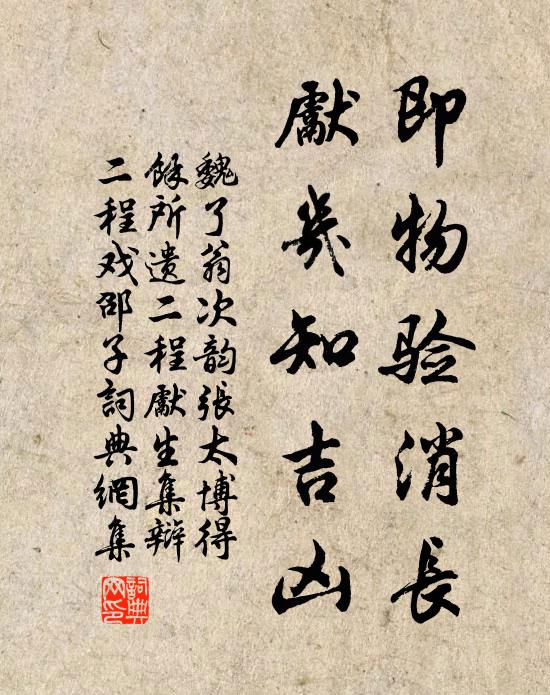 即物验消長
獻幾知吉凶
魏了翁次韵張太博得
餘所遺二程獻生集辯
二程戏邵子詞典網集
詞典
网印